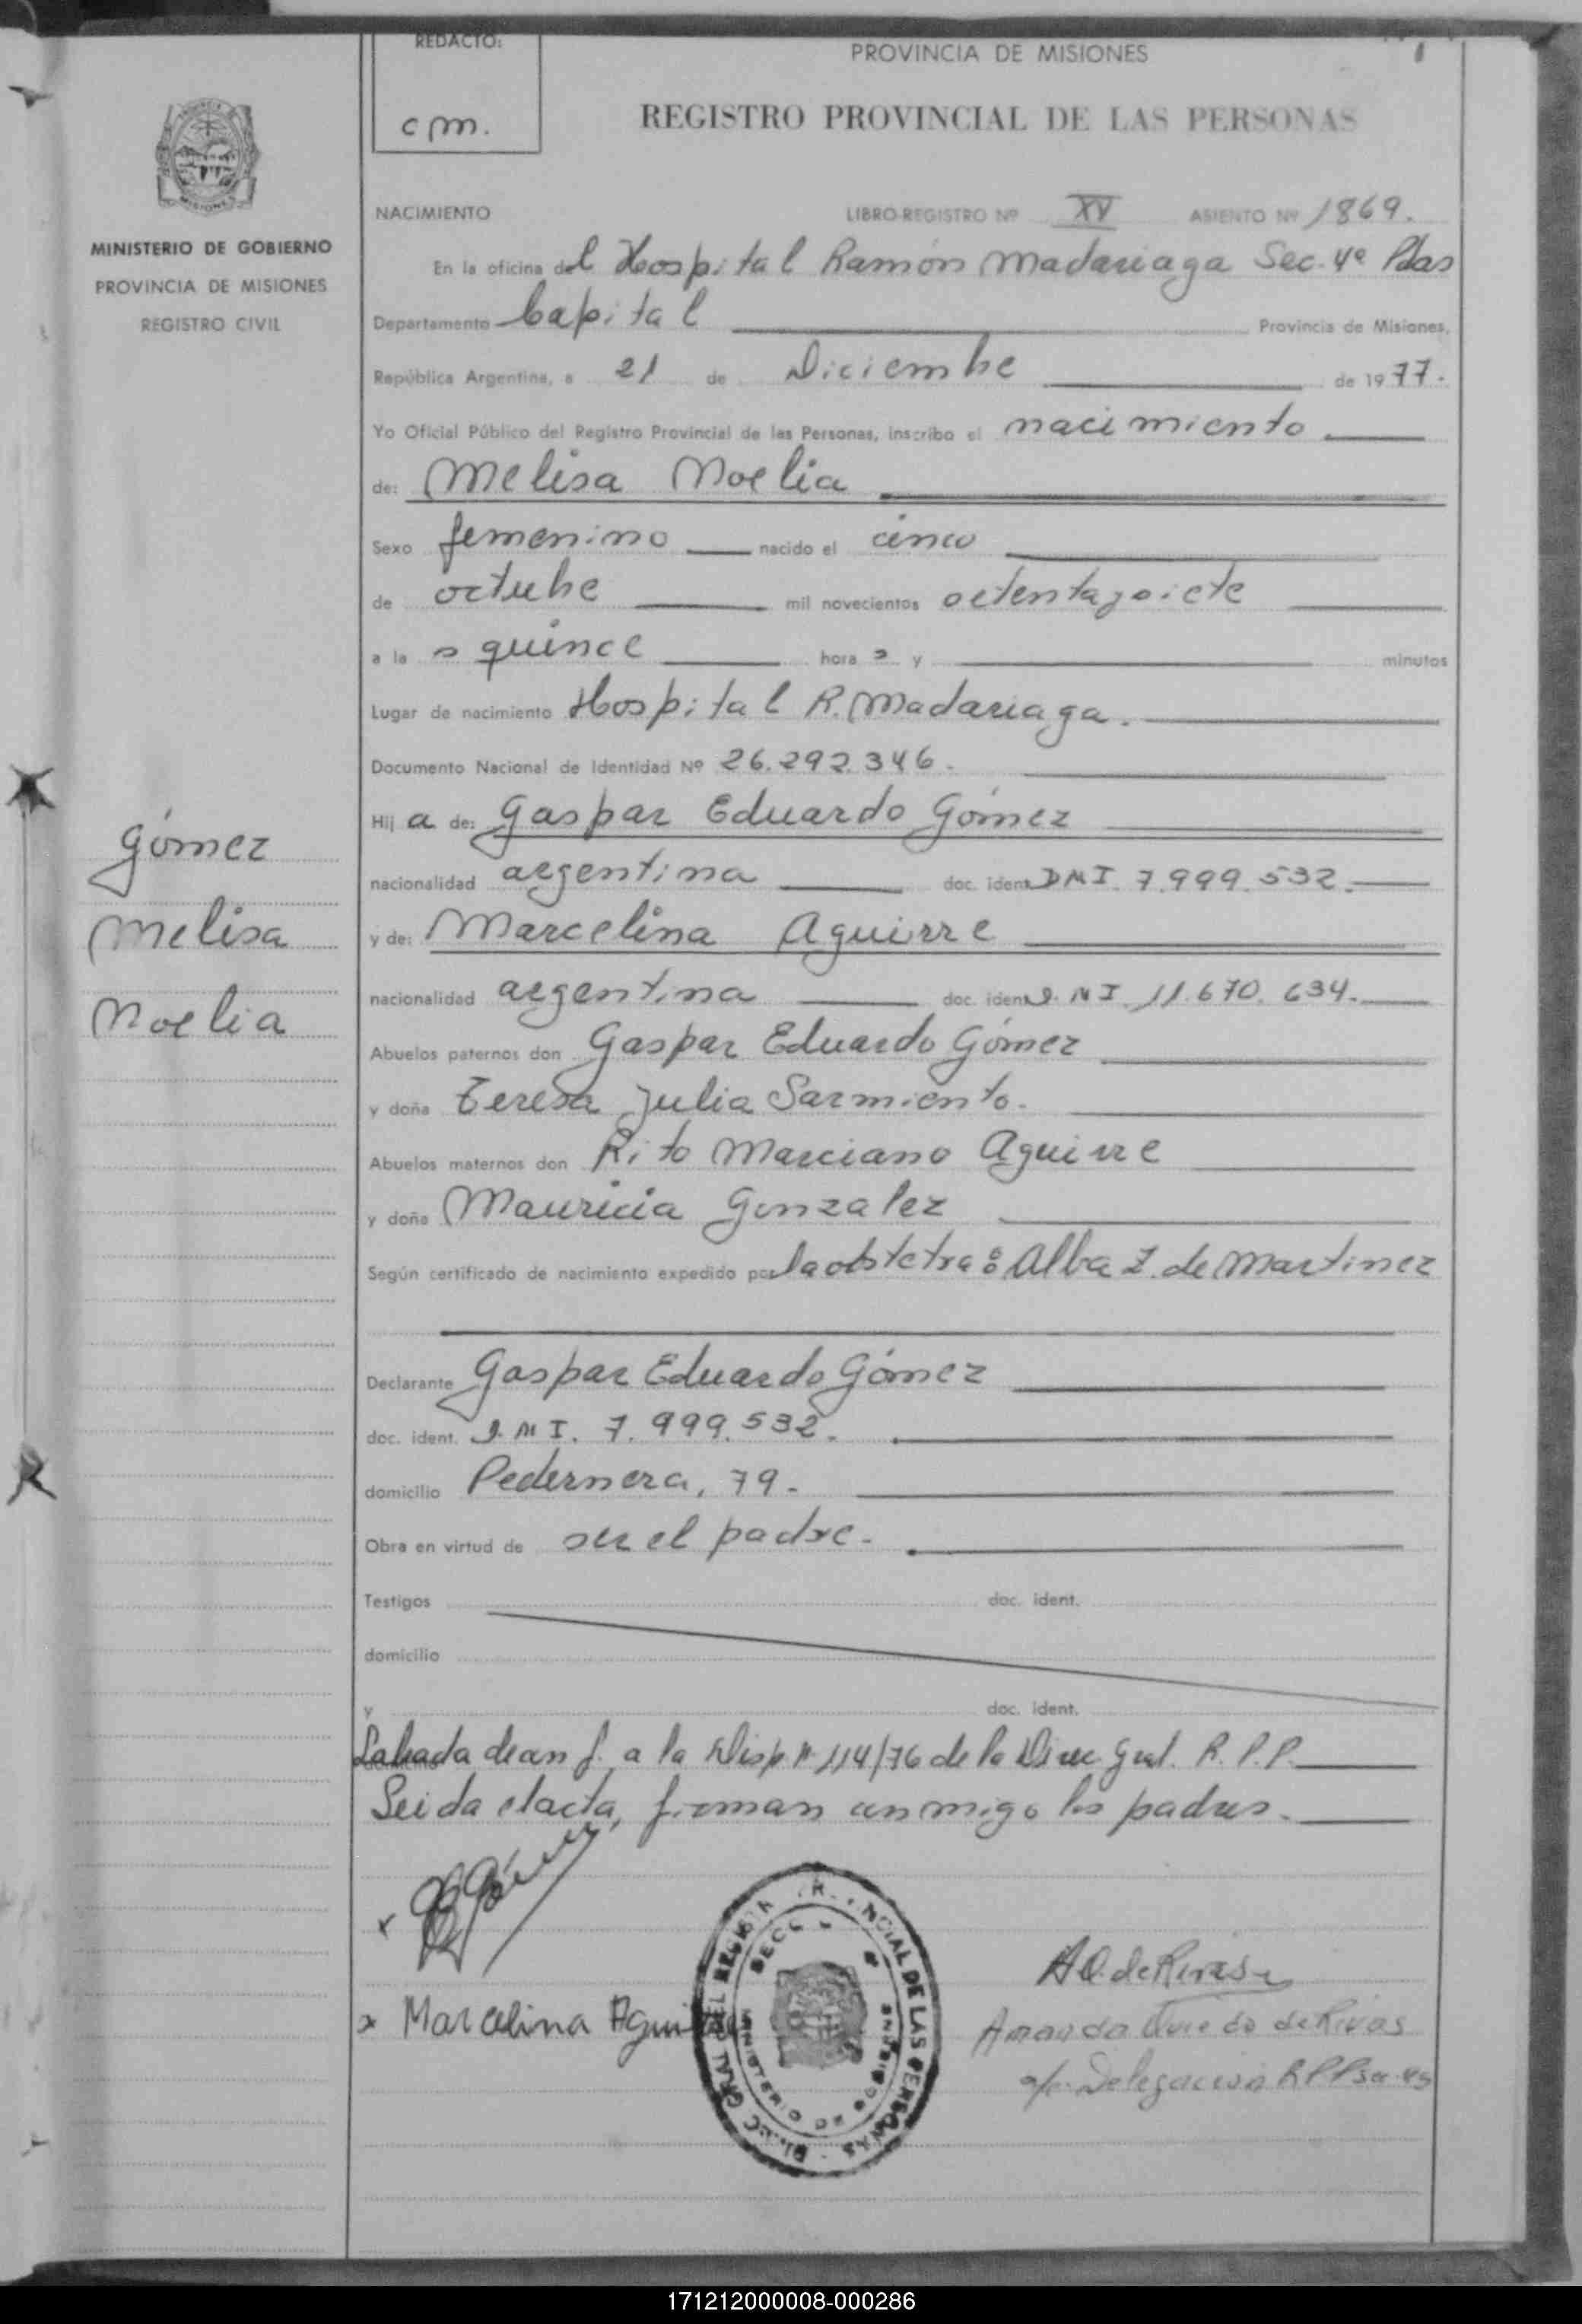 REDACTO:
cm.
PROVINCIA DE MISIONES
REGISTRO PROVINCIAL DE LAS PERSONAS
MINISTERIO DE GOBIERNO
PROVINCIA DE MISIONES
REGISTRO CIVIL
Gómez
Melisa
Noelia
NACIMIENTO LIBRO-REGISTRO Nº XV ASIENTO Nº 1869.
En la oficina del Hospital Ramón Madariaga Sec. 4ª Pdas
Departamento Capital Provincia de Misiones,
República Argentina, a 21 de Diciembre de 1977.
Yo Oficial Público del Registro Provincial de las Personas, inscribo el nacimiento
de: Melisa Noelia
Sexo femenino nacido el cinco
de octubre mil novecientos setentaysiete
a las quince horas y minutos
Lugar de nacimiento Hospital R. Madariaga.
Documento Nacional de Identidad Nº 26.292.346.
Hija de: Gaspar Eduardo Gómez
nacionalidad argentina doc. ident. DNI. 7.999.532.
y de: Marcelina Aguirre
nacionalidad argentina doc. ident. D.N I. 11.670.634.
Abuelos paternos don Gaspar Eduardo Gómez
y doña Teresa Julia Sarmiento.
Abuelos maternos don Rito Marciano Aguirre
y doña Mauricia Gonzalez
Según certificado de nacimiento expedido por la obstetra: Alba Z. de Martinez
Declarante Gaspar Eduardo Gómez
doc. ident. D.N I. 7.999.532.
domicilio Pedernera, 79.
Obra en virtud de ser el padre.
Testigos doc. ident.
domicilio
y doc. ident.
Labrada de an f. a la Disp. Nº 114/76 de la Direc. Gral. R.P.P.
Leida el acta, firman conmigo los padres.
Gómez
x Marcelina Aguirre
SECC 4
DE LAS PERSONAS
MINISTERIO DE GOBIERNO
A O. de Rivas
Amanda Oviedo de Rivas
a/c. Delegacion R P P
171212000008-000286